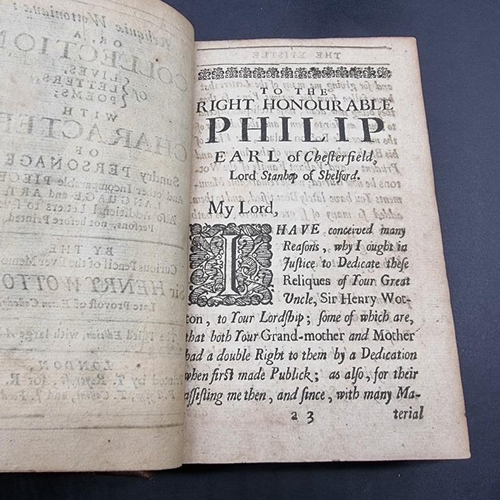 Reliquiæ Wottonianæ:
OR A
COLLECTION
Of LIVES,
LETTERS,
POEMS;
WITH
CHARACTER
OF
Sundry PERSONAGE
And other Incomparable PIECE
of LANGUAGE and AR
Also Additional Letters to
Persons, not before Printed.
BY THE
Curious Pencil of the Ever Memo
Sir HENRY WOTTO
Late Provost of
Edition, with large
LONDON
Printed by T. Roycroft for R.
THE EPISTLE
TO THE
RIGHT HONOURABLE
PHILIP
EARL of Chesterfield,
Lord Stanhop of Shelford.
My Lord,
I HAVE conceived many
Reasons, why I ought in
Justice to Dedicate these
Reliques of Your Great
Uncle, Sir Henry Wot-
ton, to Your Lordship; some of which are,
that both Your Grand-mother and Mother
had a double Right to them by a Dedication
when first made Publick; as also, for their
assisting me then, and since, with many Ma-
a 3 terial